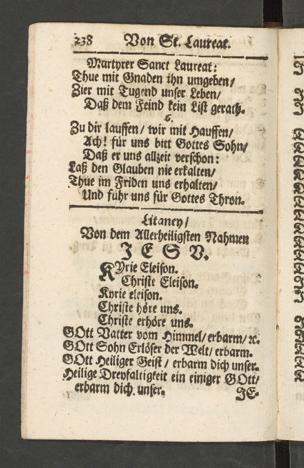 238 Von St. Laureat.
Martyrer Sanct Laureat:
Thue mit Gnaden ihn umgeben/
Zier mit Tugend unser Leben/
Daß dem Feind kein List gerath.
6.
Zu dir lauffen/ wir mit Hauffen/
Ach! für uns bitt Gottes Sohn/
Daß er uns allzeit verschon:
Laß den Glauben nie erkalten/
Thue im Friden uns erhalten/
Und führ uns für Gottes Thron.
Litaney/
Von dem Allerheiligsten Nahmen
JESV.
KYrie Eleison.
Christe Eleison.
Kyrie eleison.
Christe höre uns.
Christe erhöre uns.
GOtt Vatter vom Himmel/ erbarm/ ꝛc.
GOtt Sohn Erlöser der Welt/ erbarm.
GOtt Heiliger Geist/ erbarm dich unser.
Heilige Dreyfaltigkeit ein einiger GOtt/
erbarm dich unser. JE-